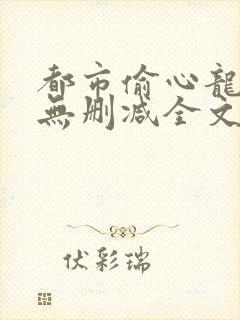 都市偷心龍
無删减全文
伏彩瑞